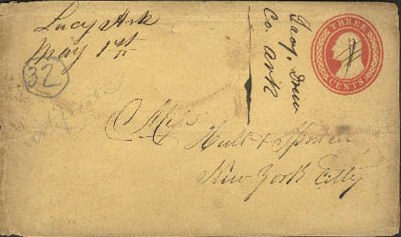 Lucy Ark
May 1st
32
Drew
Co. Ark
THREE
CENTS
Mess
Hull &
New York City